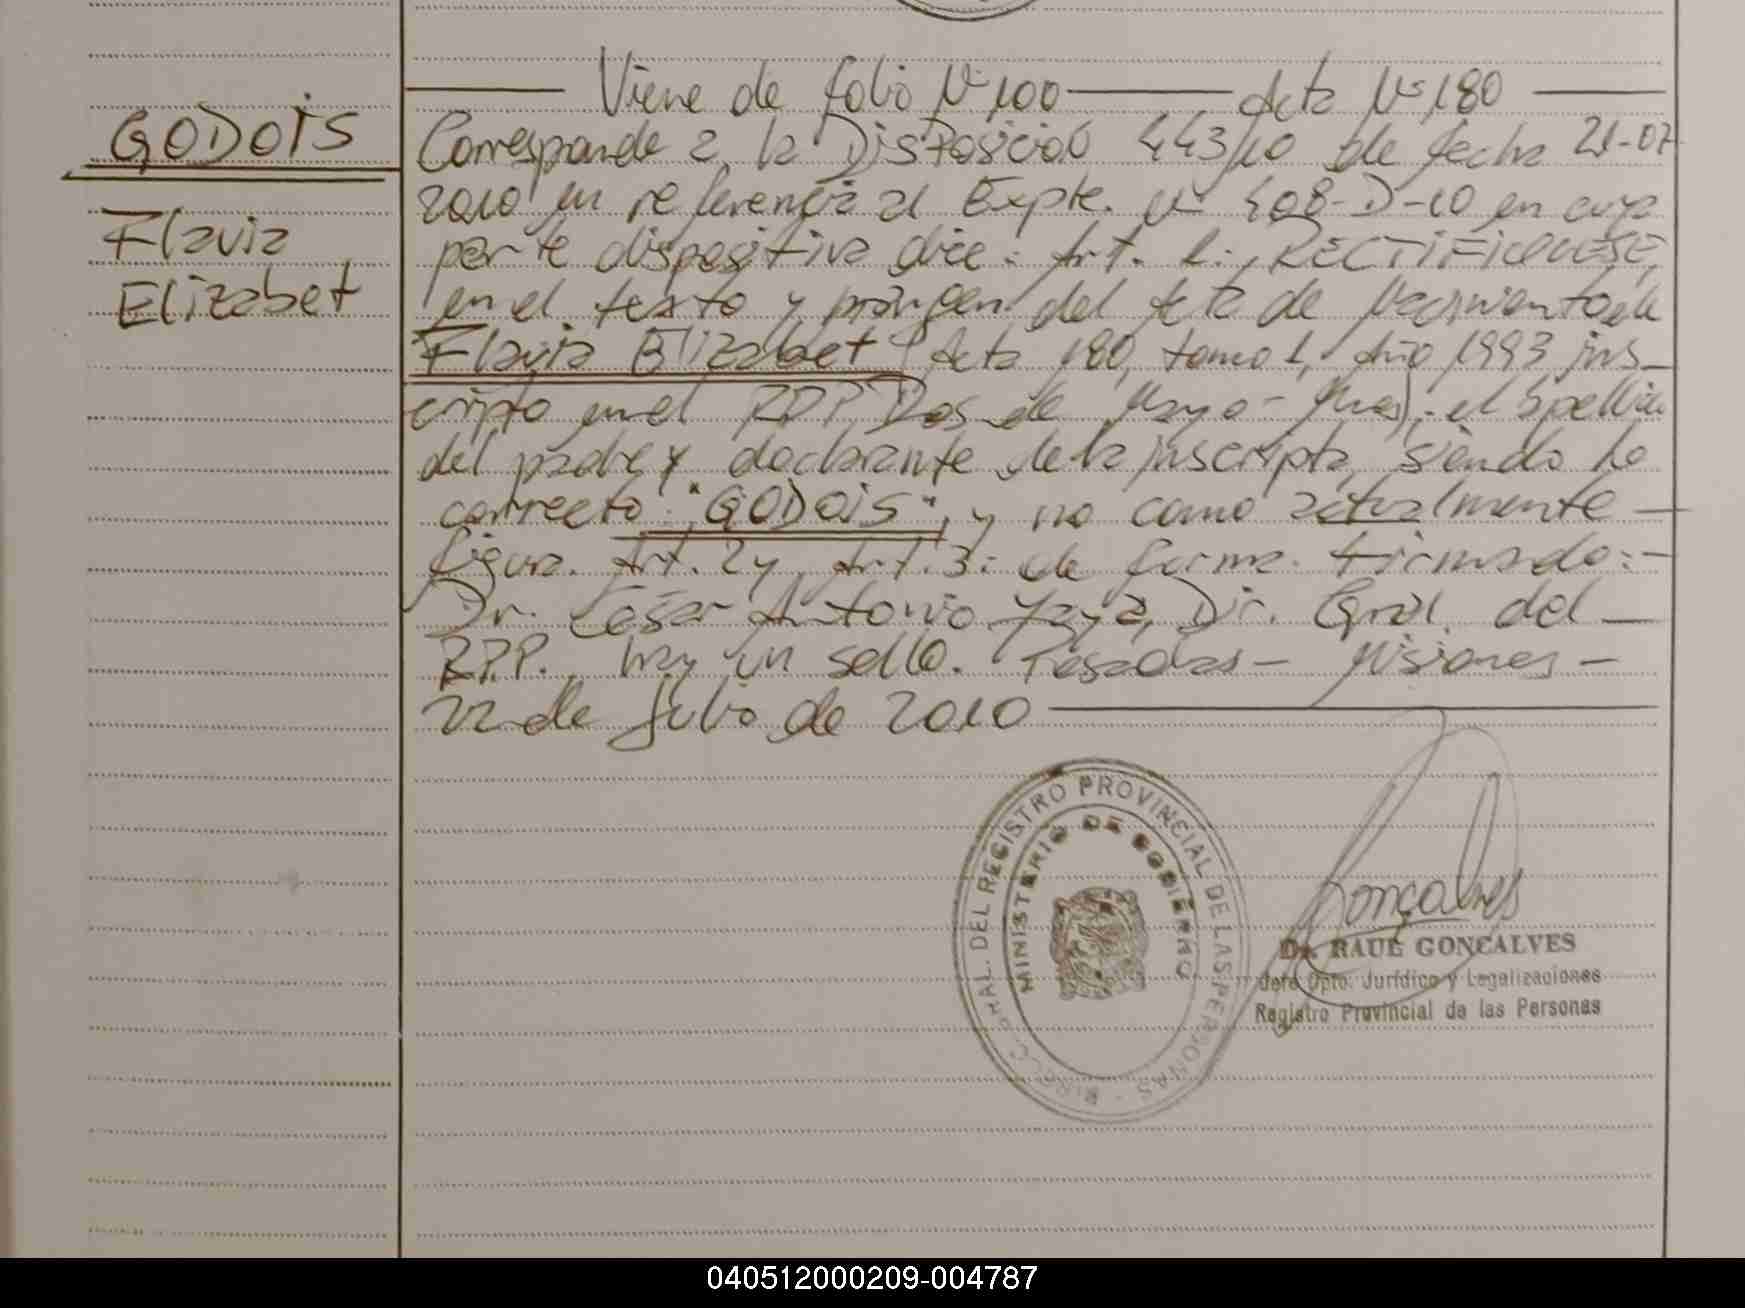 GODOIS
Flavia
Elizabet
Viene de folio Nº 100 Acta Nº 180
Corresponde a la Disposición 443/10 de fecha 21-07
2010 en referencia al Expte. Nº 408-D-10 en cuya
parte dispositiva dice: Art. 1: RECTIFIQUESE,
en el texto y margen del Acta de Nacimiento de
Flavia Elizabet (Acta 180, tomo 1, Año 1993 ins-
cripto en el RPP Dos de Mayo - Mnes): el apellido
del padre y declarante de la inscripta, siendo lo
correcto: "GODOIS", y no como actualmente
figura. Art. 2 y Art. 3: de forma. Firmado:-
Dr. César Antonio Yaya, Dir. Gral. del
RPP. hay un sello. Posadas - Misiones -
22 de Julio de 2010
DEL REGISTRO PROVINCIAL DE LAS PERSONAS
MINISTERIO DE GOBIERNO
Gonçalves
Dr. RAUL GONCALVES
Jefe Dpto. Jurídico y Legalizaciones
Registro Provincial de las Personas
040512000209-004787